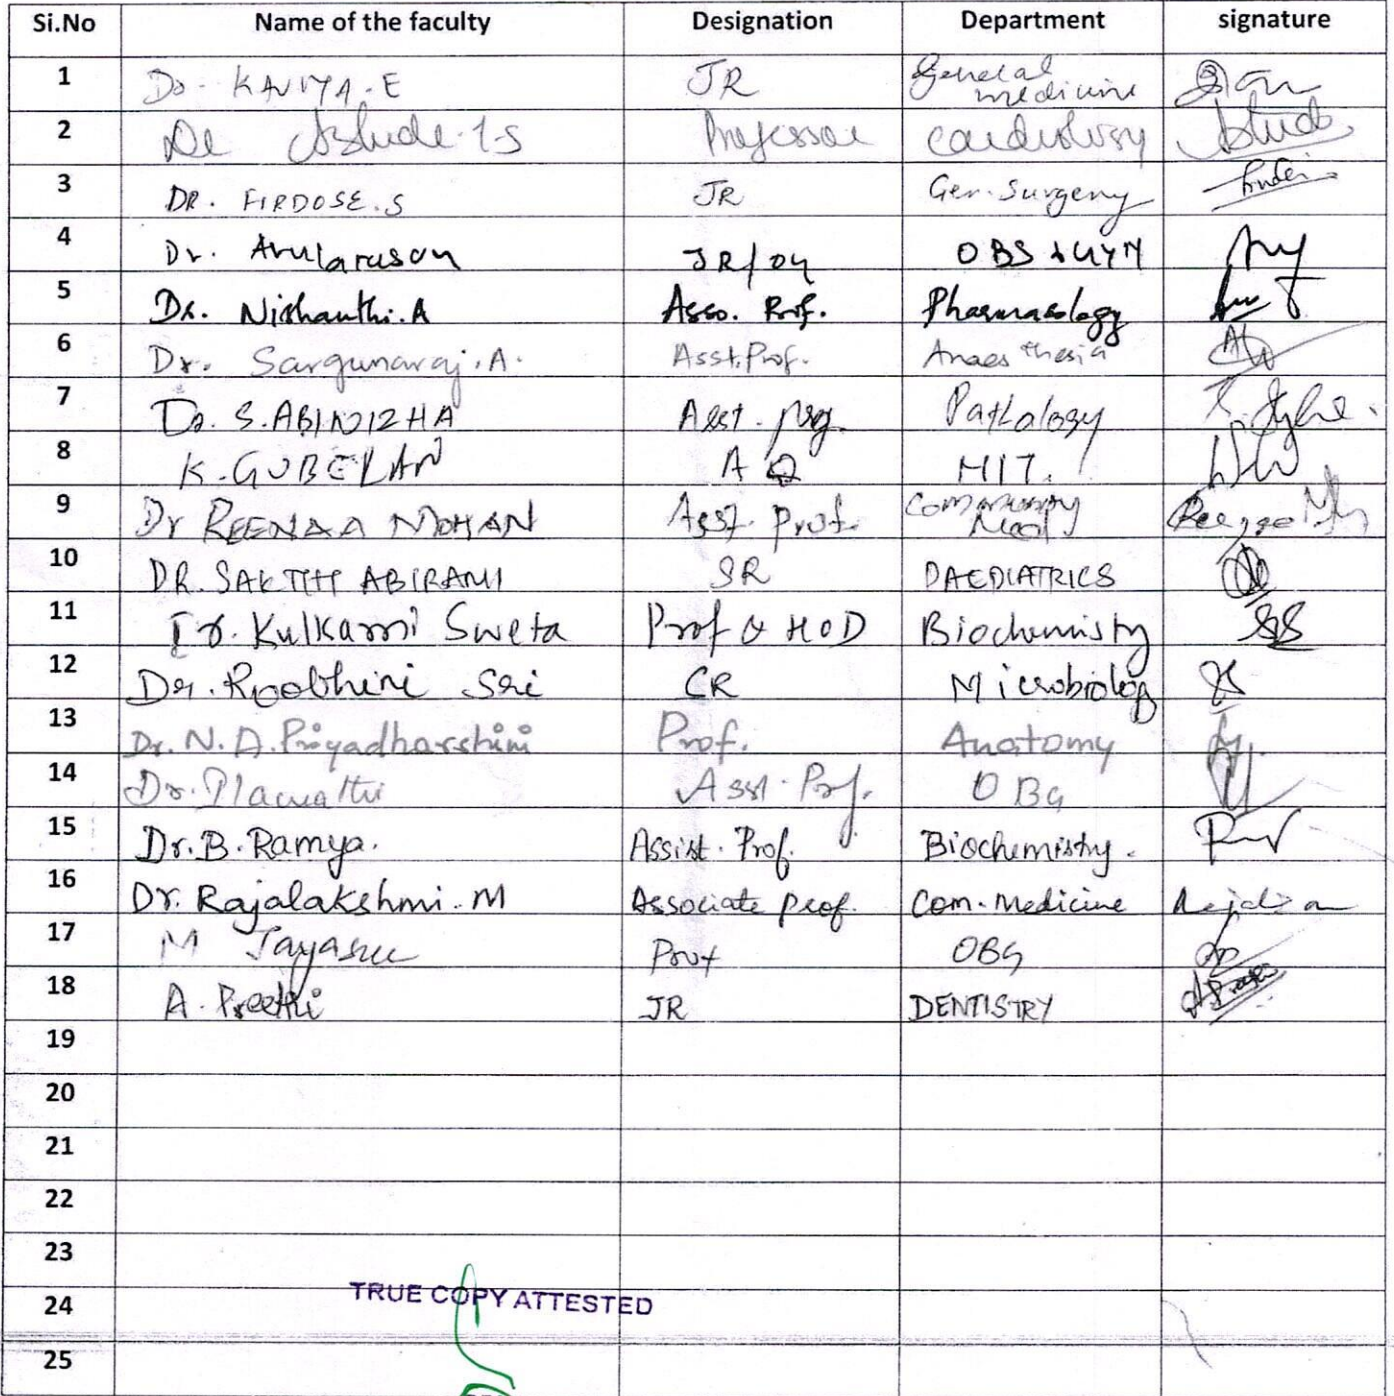 Si.No Name of the faculty Designation Department signature
1 Dr. KAVIYA.E JR General medicine
2 Professor Cardiology
3 DR. FIRDOSE.S JR Gen. Surgery
4 Dr. Arularasan JR / OG OBS & GYN
5 Dr. Nishanthi.A Asso. Prof. Pharmacology
6 Dr. Sargunaraj.A. Asst.Prof. Anaesthesia
7 Dr. S.ABINIZHA Asst. prof. Pathology
8 K.GUBELAN HIT.
9 Dr REENAA MOHAN Asst. prof. Community Med
10 DR. SAKTHI ABIRAMI SR PAEDIATRICS
11 Dr. Kulkarni Sweta Prof & HOD Biochemistry
12 Dr. Roobhini Sri CR Microbiology
13 Dr. N.D.Priyadharshini Prof. Anatomy
14 Asst. Prof. OBG
15 Dr.B.Ramya. Assist. Prof. Biochemistry.
16 Dr. Rajalakshmi. M Associate prof. Com. Medicine
17 M Jayasree Prof OBG
18 A. Preethi JR DENTISTRY
19
20
21
22
23
24
25
TRUE COPY ATTESTED